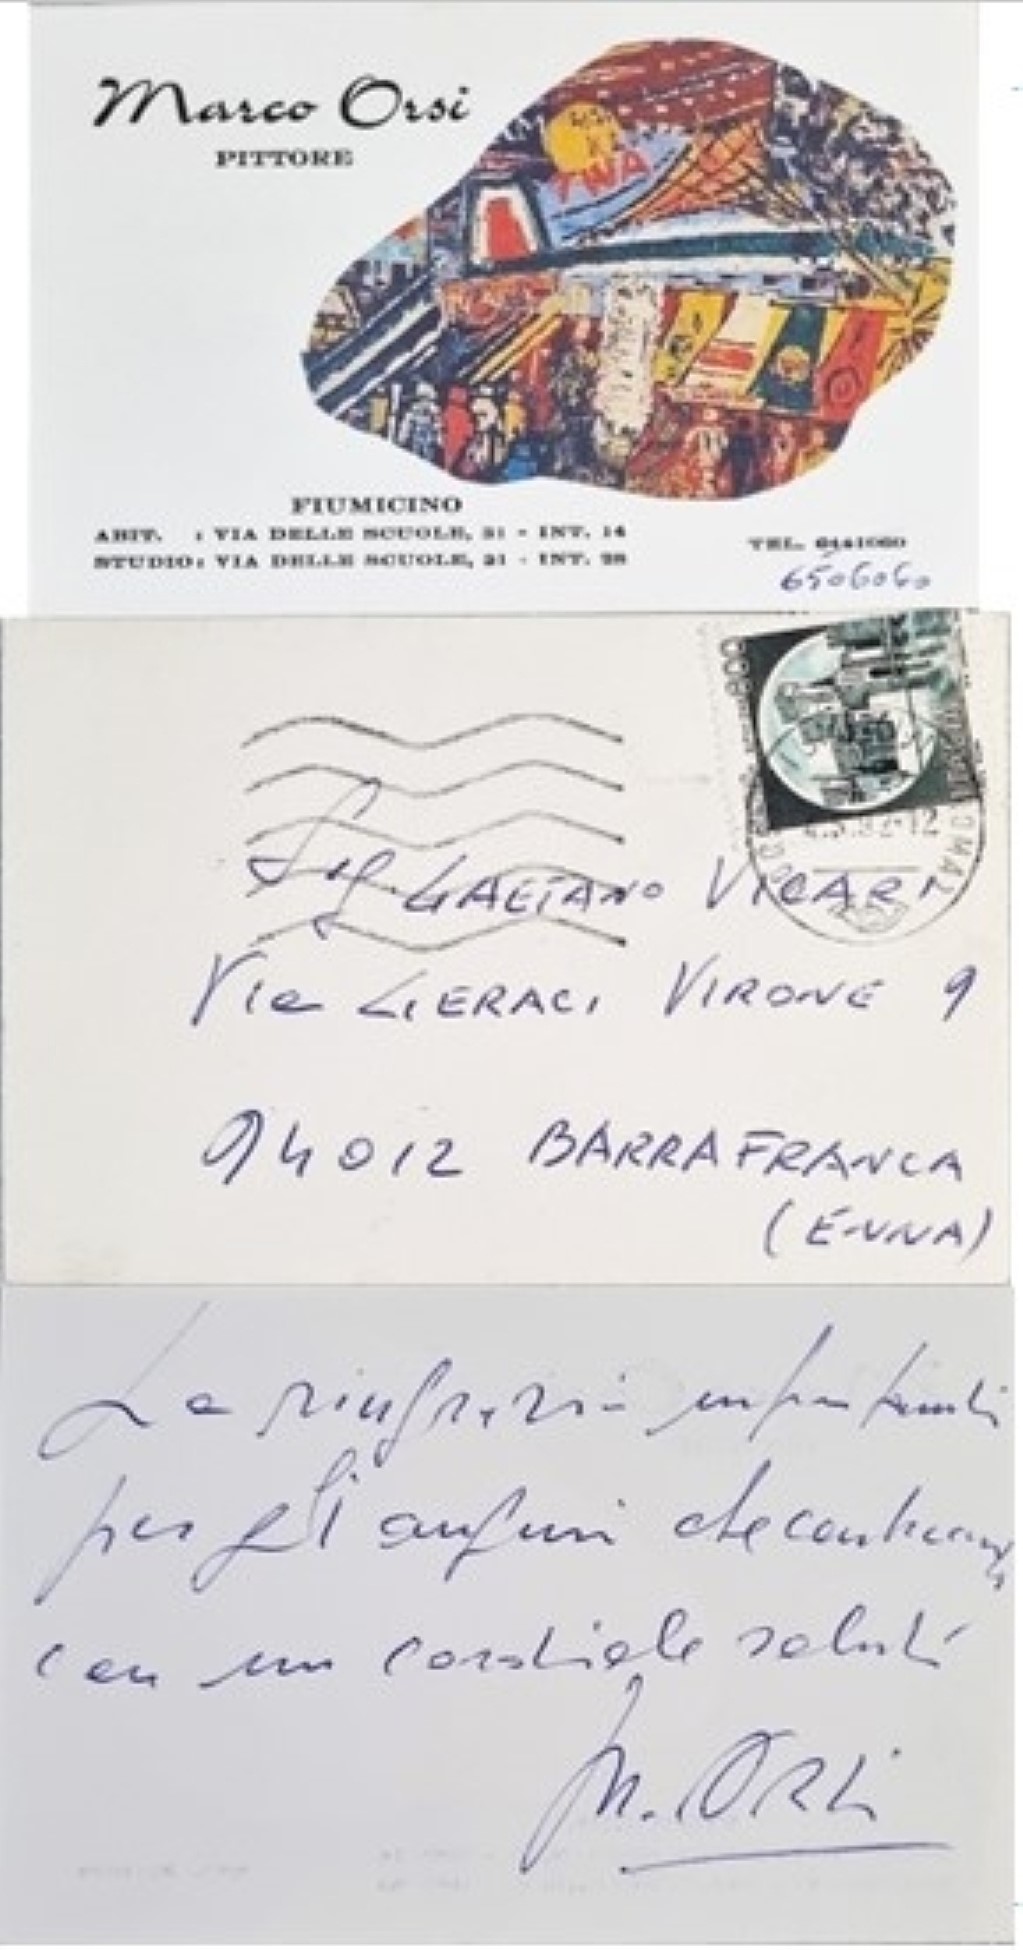 Marco Orsi
PITTORE
TWA
FIUMICINO
ABIT. : VIA DELLE SCUOLE, 21 - INT. 14
STUDIO: VIA DELLE SCUOLE, 21 - INT. 28
TEL. 6441060
6506060
Sig. GAETANO VICARI
Via GERACI VIRONE 9
94012 BARRAFRANCA
(ENNA)
La ringrazio
per gli auguri che
con un cordiale saluto
M. ORSI